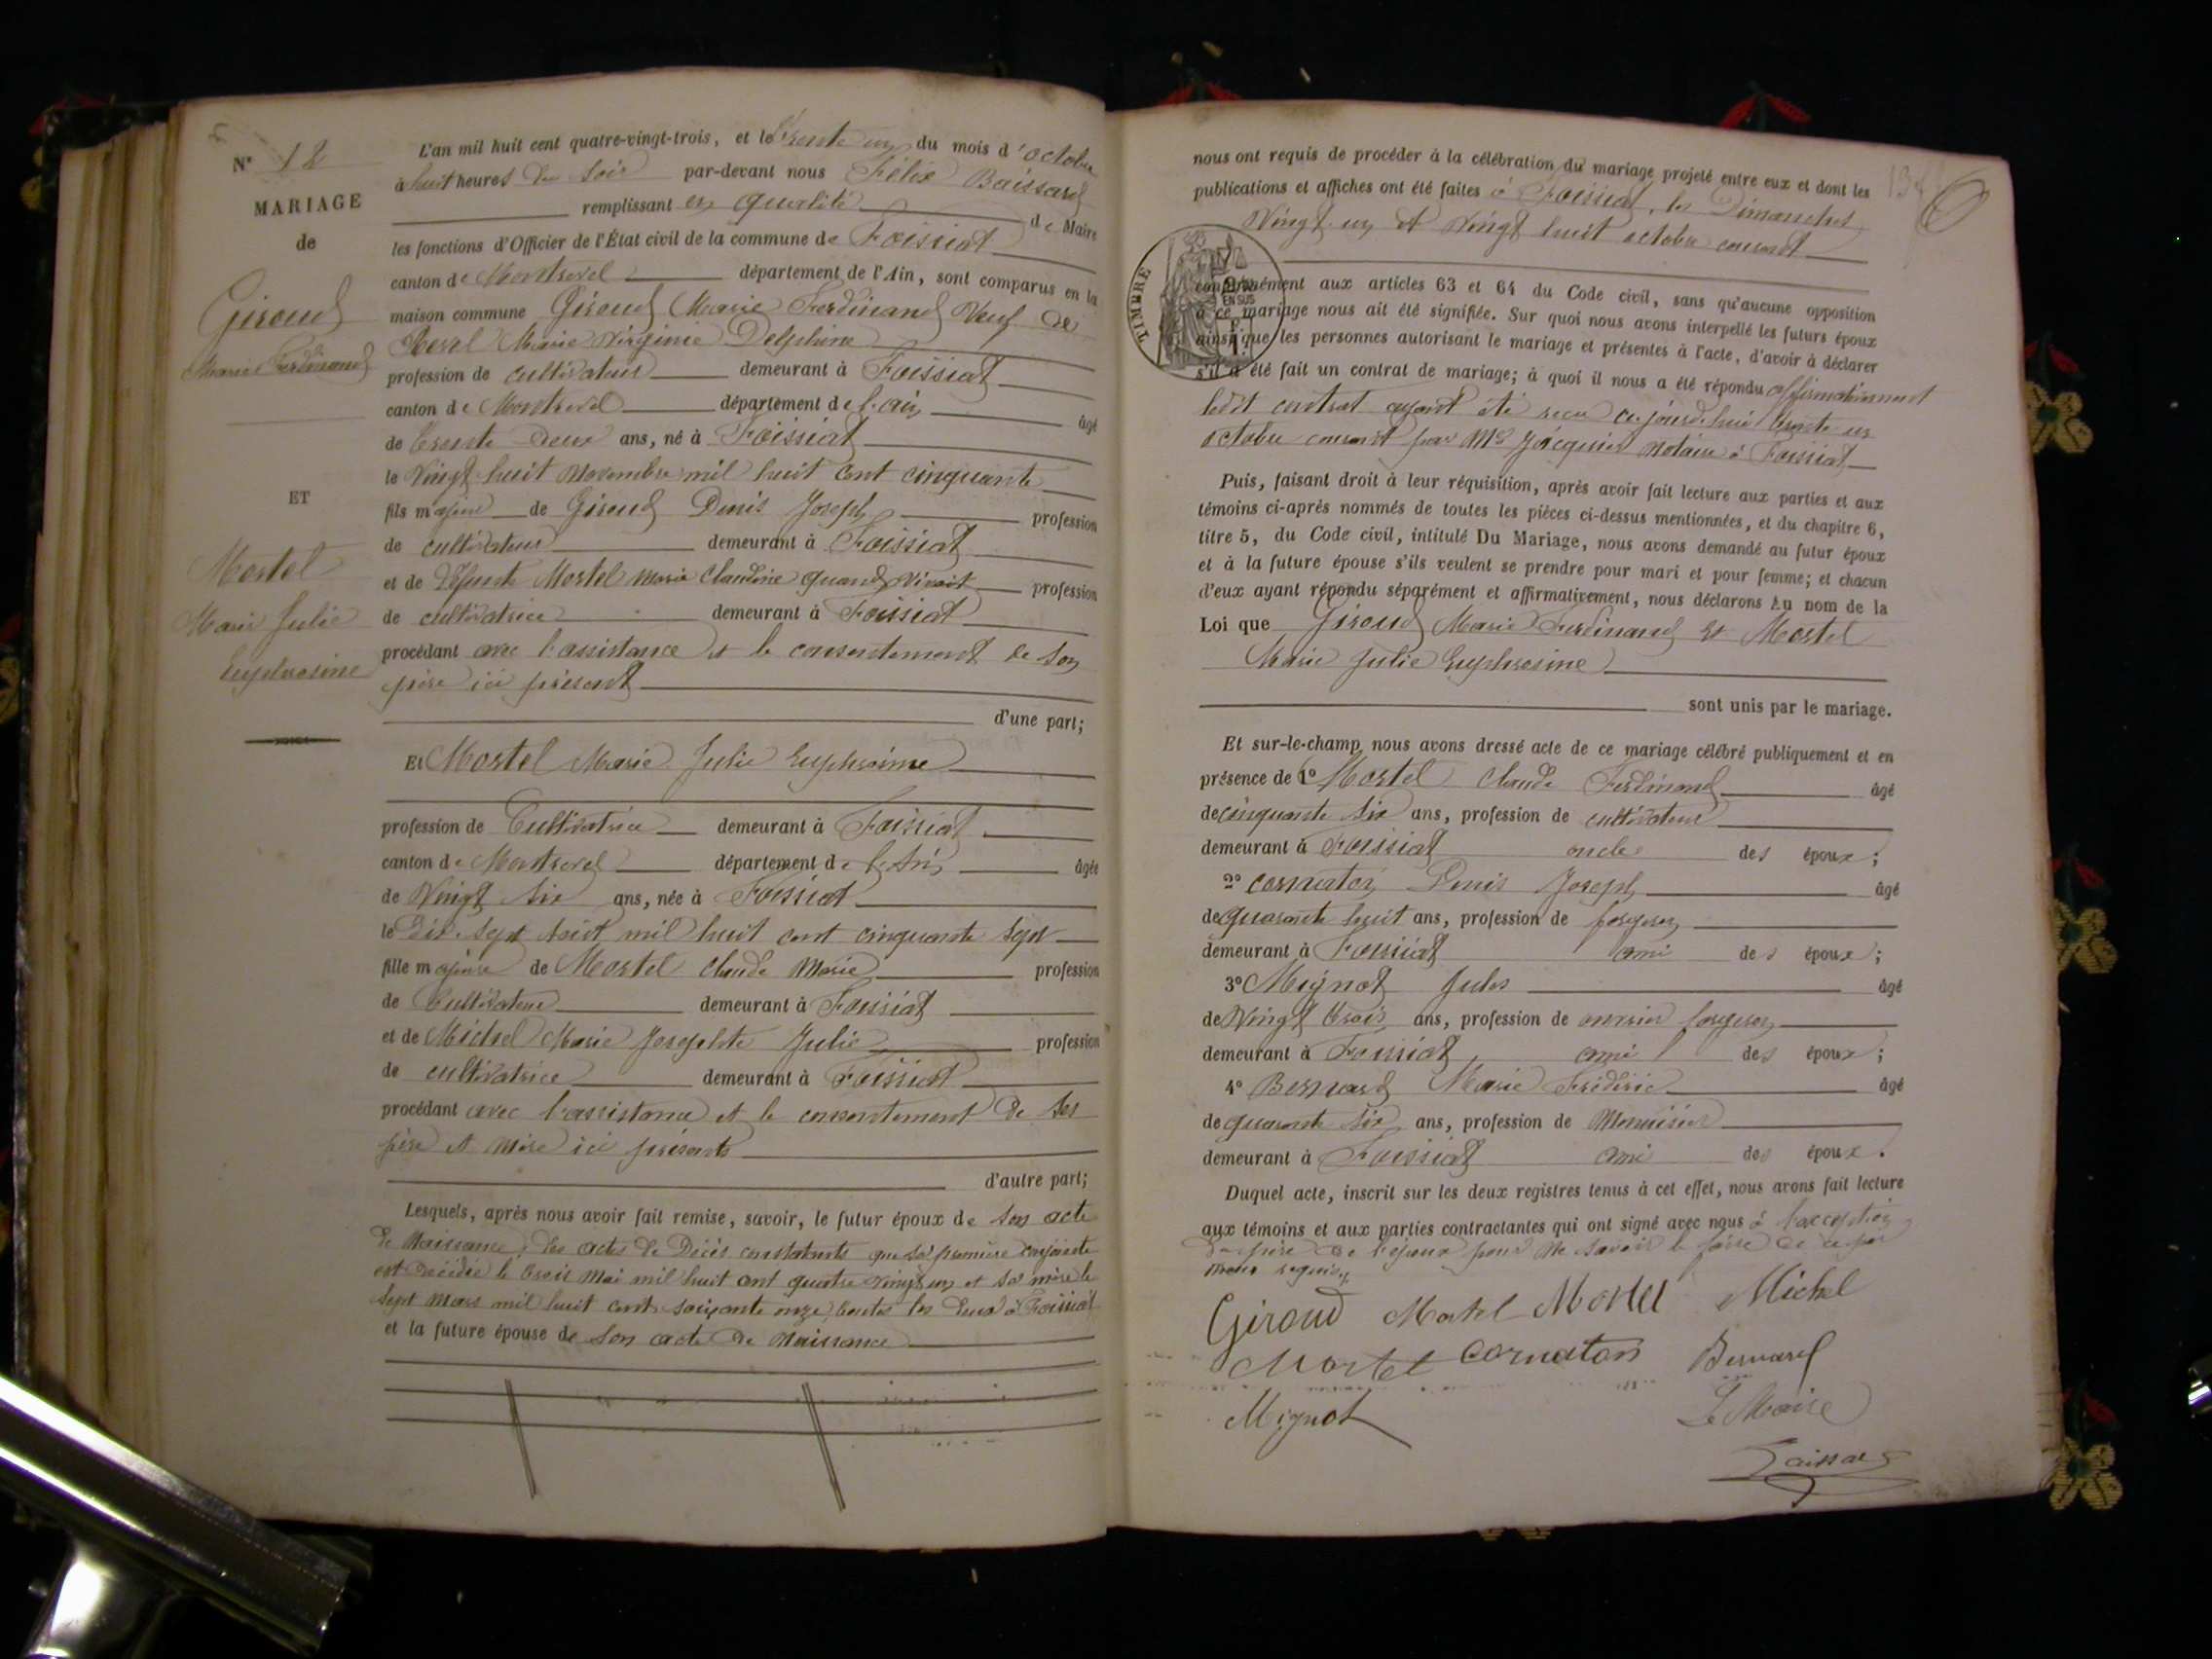 N° 12
MARIAGE
de
Giroud
Marie Ferdinand
ET
Mortel
Marie Julie
Euphrosine
L'an mil huit cent quatre-vingt-trois, et le trente un du mois d'octobre
à huit heures du soir par-devant nous Félix Baissard
remplissant en qualité de Maire
les fonctions d'Officier de l'État civil de la commune de Foissiat
canton de Montrevel département de l'Ain, sont comparus en la
maison commune Giroud Marie Ferdinand Veuf de
Marie Virginie Delphine
profession de cultivateur demeurant à Foissiat
canton de Montrevel département de l'ain âgé
de trente deux ans, né à Foissiat
le Vingt huit Novembre mil huit cent cinquante
fils majeur de Giroud Denis Joseph profession
de cultivateur demeurant à Foissiat
et de défunte Mortel Marie Claudine quand vivait profession
de cultivatrice demeurant à Foissiat
procédant avec l'assistance et le consentement de son
père ici présent
d'une part;
Et Mortel Marie Julie Euphrosine
profession de Cultivatrice demeurant à Foissiat
canton de Montrevel département de l'Ain âgée
de Vingt six ans, née à Foissiat
le Dix sept Août mil huit cent cinquante sept
fille majeure de Mortel Claude Marie profession
de Cultivateur demeurant à Foissiat
et de Michel Marie Josephte Julie profession
de cultivatrice demeurant à Foissiat
procédant avec l'assistance et le consentement de ses
père et mère ici présents
d'autre part;
Lesquels, après nous avoir fait remise, savoir, le futur époux de son acte
de Naissance, des actes de Décès constatants que sa première conjointe
est décédée le trois Mai mil huit cent quatre vingt un et sa mère le
sept Mars mil huit cent soixante onze, toutes les deux à Foissiat
et la future épouse de son acte de Naissance
nous ont requis de procéder à la célébration du mariage projeté entre eux et dont les
publications et affiches ont été faites à Foissiat, les Dimanches
Vingt un et Vingt huit octobre courant
TIMBRE
EN SUS
conformément aux articles 63 et 64 du Code civil, sans qu'aucune opposition
à ce mariage nous ait été signifiée. Sur quoi nous avons interpellé les futurs époux
ainsi que les personnes autorisant le mariage et présentes à l'acte, d'avoir à déclarer
s'il a été fait un contrat de mariage; à quoi il nous a été répondu affirmativement
ledit contrat ayant été reçu ce jourd'hui trente un
octobre courant par Me Jacquier notaire à Foissiat
Puis, faisant droit à leur réquisition, après avoir fait lecture aux parties et aux
témoins ci-après nommés de toutes les pièces ci-dessus mentionnées, et du chapitre 6,
titre 5, du Code civil, intitulé Du Mariage, nous avons demandé au futur époux
et à la future épouse s'ils veulent se prendre pour mari et pour femme; et chacun
d'eux ayant répondu séparément et affirmativement, nous déclarons au nom de la
Loi que Giroud Marie Ferdinand et Mortel
Marie Julie Euphrosine
sont unis par le mariage.
Et sur-le-champ nous avons dressé acte de ce mariage célébré publiquement et en
présence de 1° Mortel Claude Ferdinand âgé
de cinquante six ans, profession de cultivateur
demeurant à Foissiat oncle des époux;
2° Cornaton Denis Joseph âgé
de quarante huit ans, profession de forgeron
demeurant à Foissiat ami des époux;
3° Mignot Jules âgé
de Vingt trois ans, profession de ouvrier forgeron
demeurant à Foissiat ami des époux;
4° Bernard Marie Frédéric âgé
de quarante six ans, profession de Menuisier
demeurant à Foissiat ami des époux.
Duquel acte, inscrit sur les deux registres tenus à cet effet, nous avons fait lecture
aux témoins et aux parties contractantes qui ont signé avec nous à l'exception
du père de l'époux pour ne savoir le faire de ce par
nous requis.
Giroud Mortel Mortel Michel
Mortel Cornaton Bernard
Mignot Le Maire
Baissard